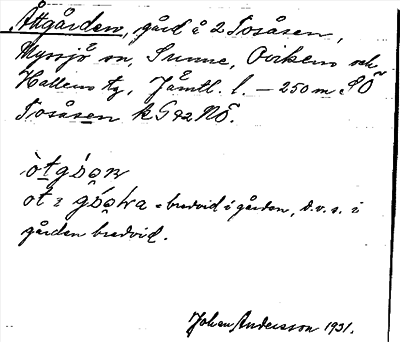 Åttgården, gård å 2 Tosåsen,
Myssjö sn, Sunne, Ovikens och
Hallens tg, Jämtl. l. – 250 m SÖ
Tosåsen k G 92 NÖ.
= bredvid i gården, d.v.s. i
gården bredvid.
Johan Andersson 1931.